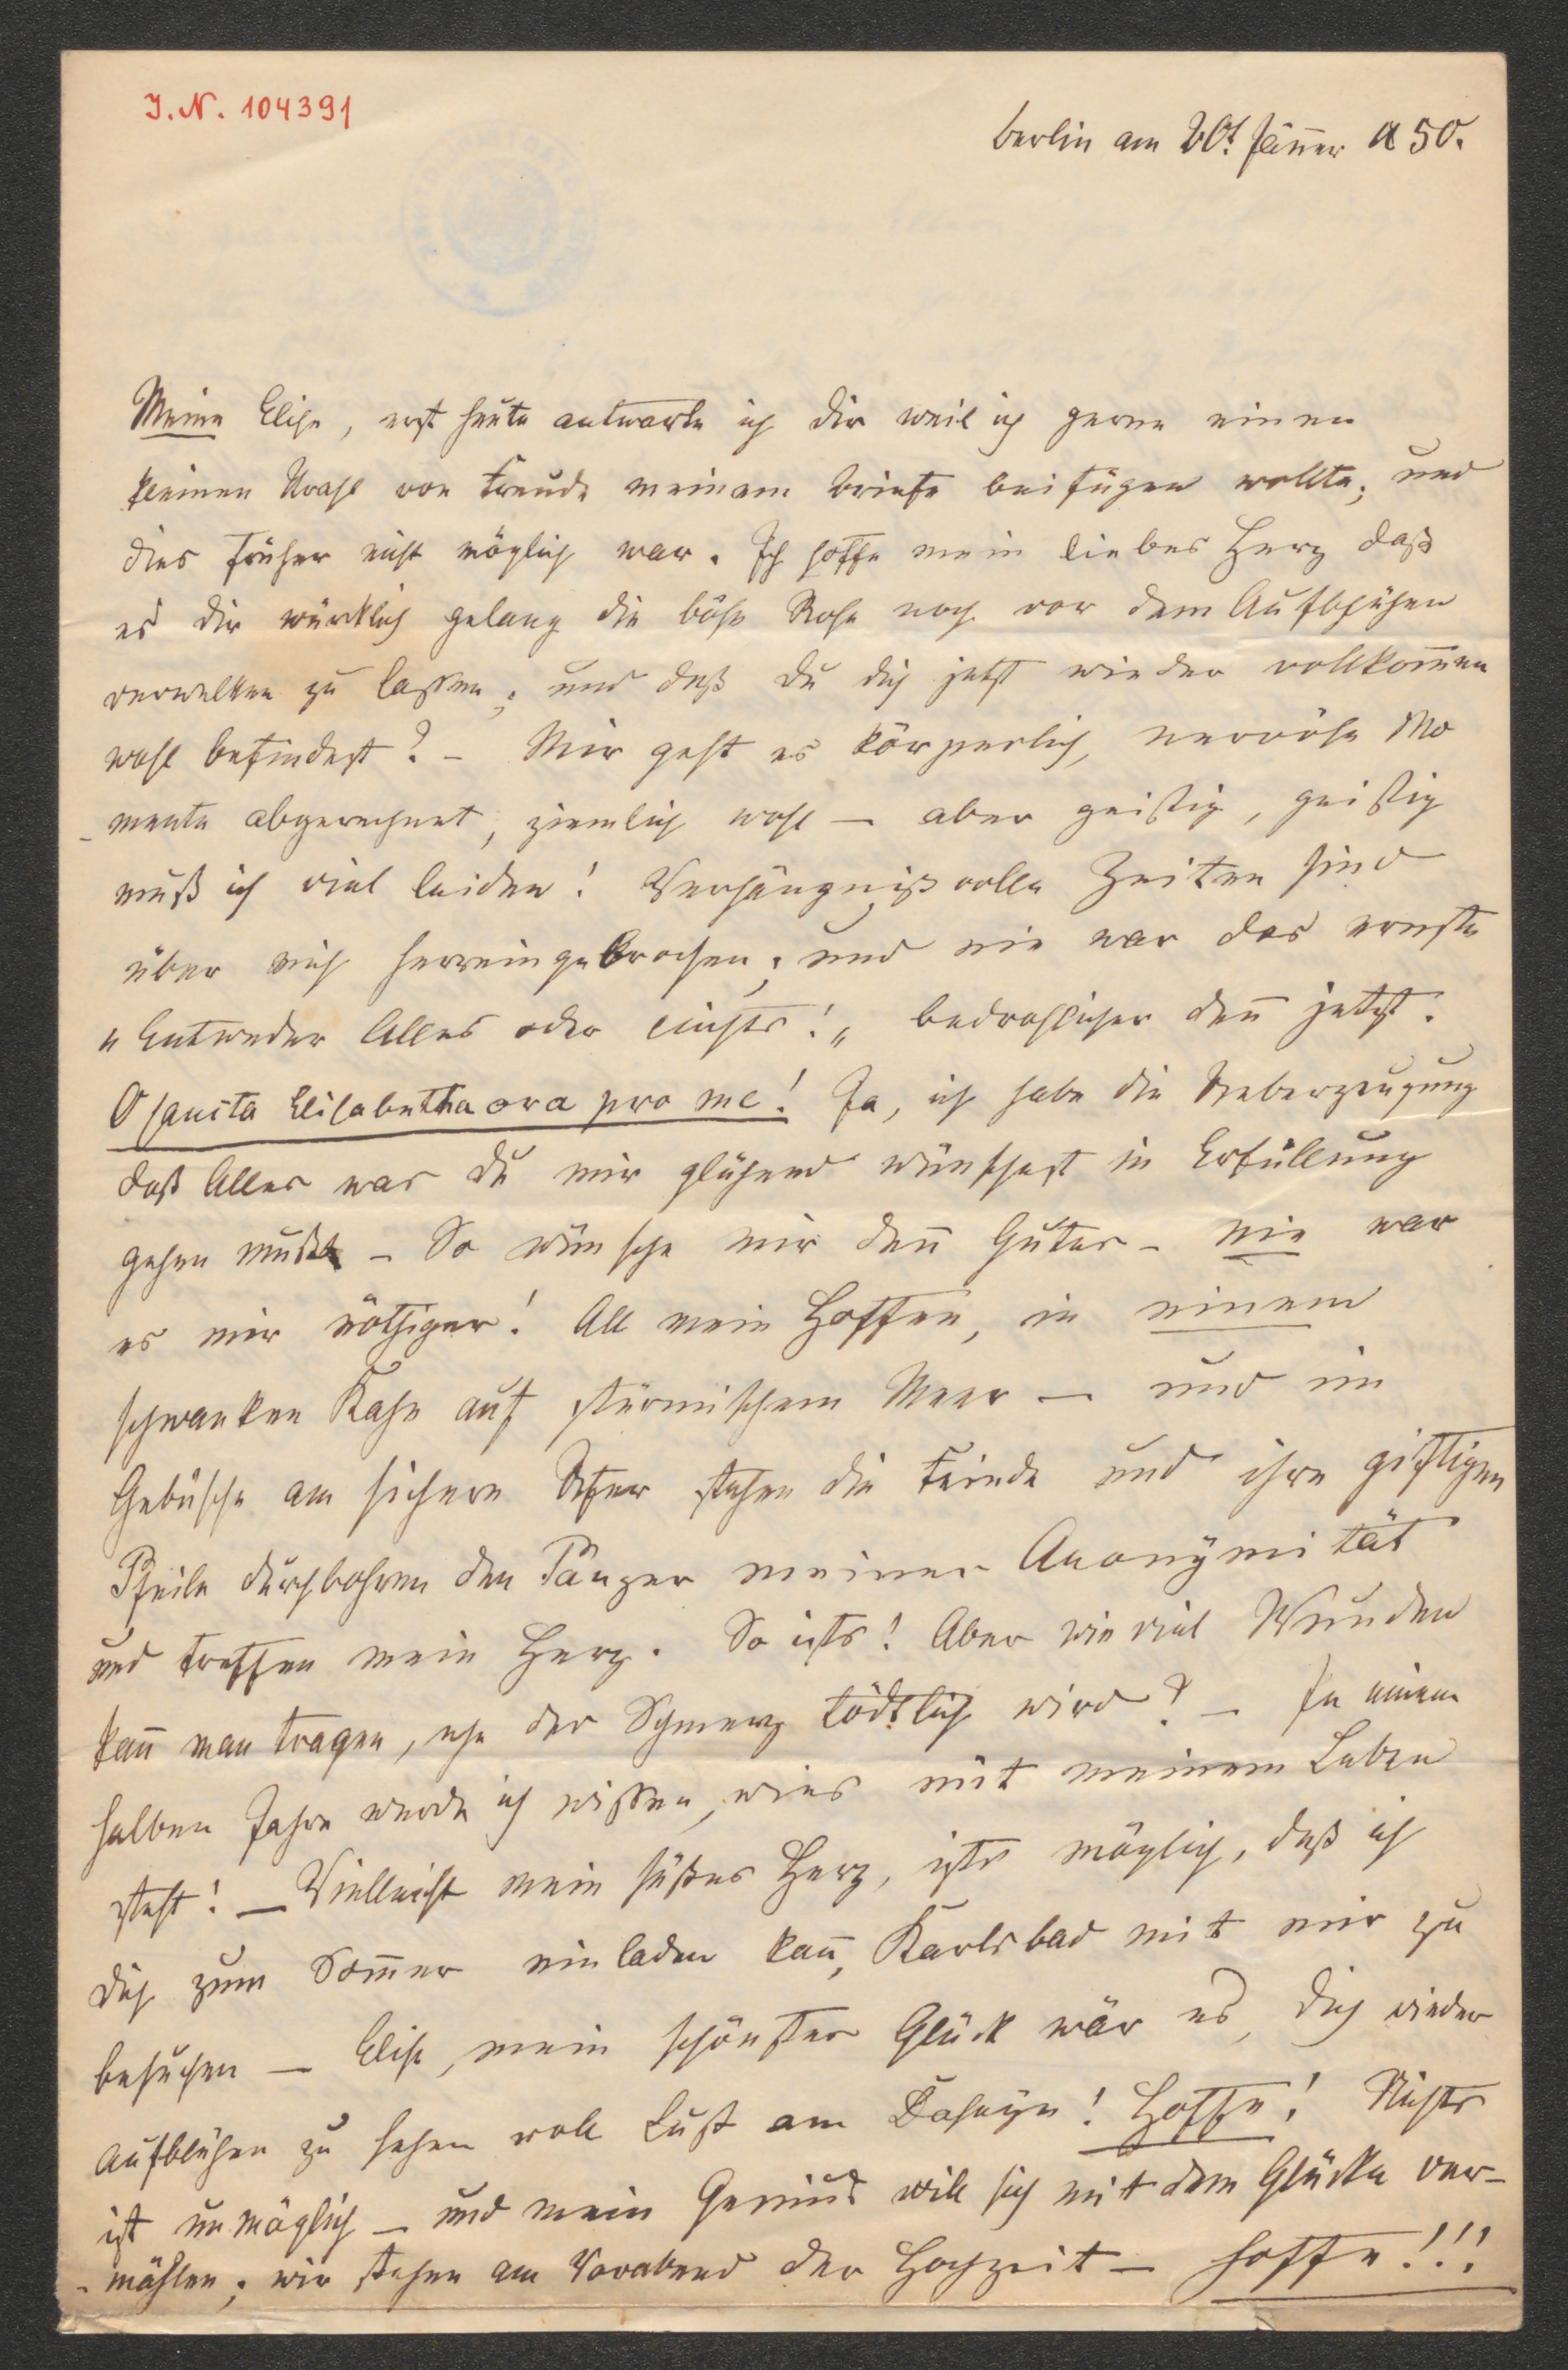 I.N. 104391
Berlin am 20t. Jänner 850.
Meine Elise, erst heute antworte ich dir weil ich gerne einen
kleinen Strahl von Freude meinem Briefe beifügen wollte; und
dies früher nicht möglich war. Ich hoffe mein liebes Herz daß
es dir würklich gelang die böse Rose noch vor dem Aufblühen
verwelken zu lassen; und daß du dich jetzt wieder vollkom̅en
wohl befindest? – Mir geht es körperlich, nervöse Mo
-mente abgerechnet, ziemlich wohl – aber geistig, geistig
muß ich viel leiden! Verhängnißvolle Zeiten sind
über mich hereingebrochen; und nie war das ernste
„Entweder Alles oder Nichts!„ bedrohlicher den̅ jetzt.
O sancta Elisabettha ora pro me! Ja, ich habe die Ueberzeugung
daß Alles was du mir glühend wünschest in Erfüllung
gehen muß – So wünsche mir den̅ Gutes – nie war
es mir nöthiger! All mein Hoffen, in einem
schwanken Kahn auf stürmischem Meer – und im
Gebüsche am sichern Ufer stehen die Feinde und ihre giftigen
Pfeile durchbohren den Panzer meiner Anonÿmität
und treffen mein Herz. So ists! Aber wie viel Wunden
kan̅ man tragen, ehe der Schmerz tödtlich wird? – In einem
halben Jahre werde ich wissen, wies mit meinem Leben
steht! – Vielleicht mein süßes Herz, ists möglich, daß ich
dich zum Som̅er einladen kan̅, Karlsbad mit mir zu
besuchen – Elise, mein schönstes Glück wär es, dich wieder
aufblühen zu sehen voll Lust am Daseÿn! Hoffe! Nichts
ist unmöglich – und mein Genius will sich mit dem Glücke ver-
-mählen; wir stehen am Vorabend der Hochzeit – hoffe!!!